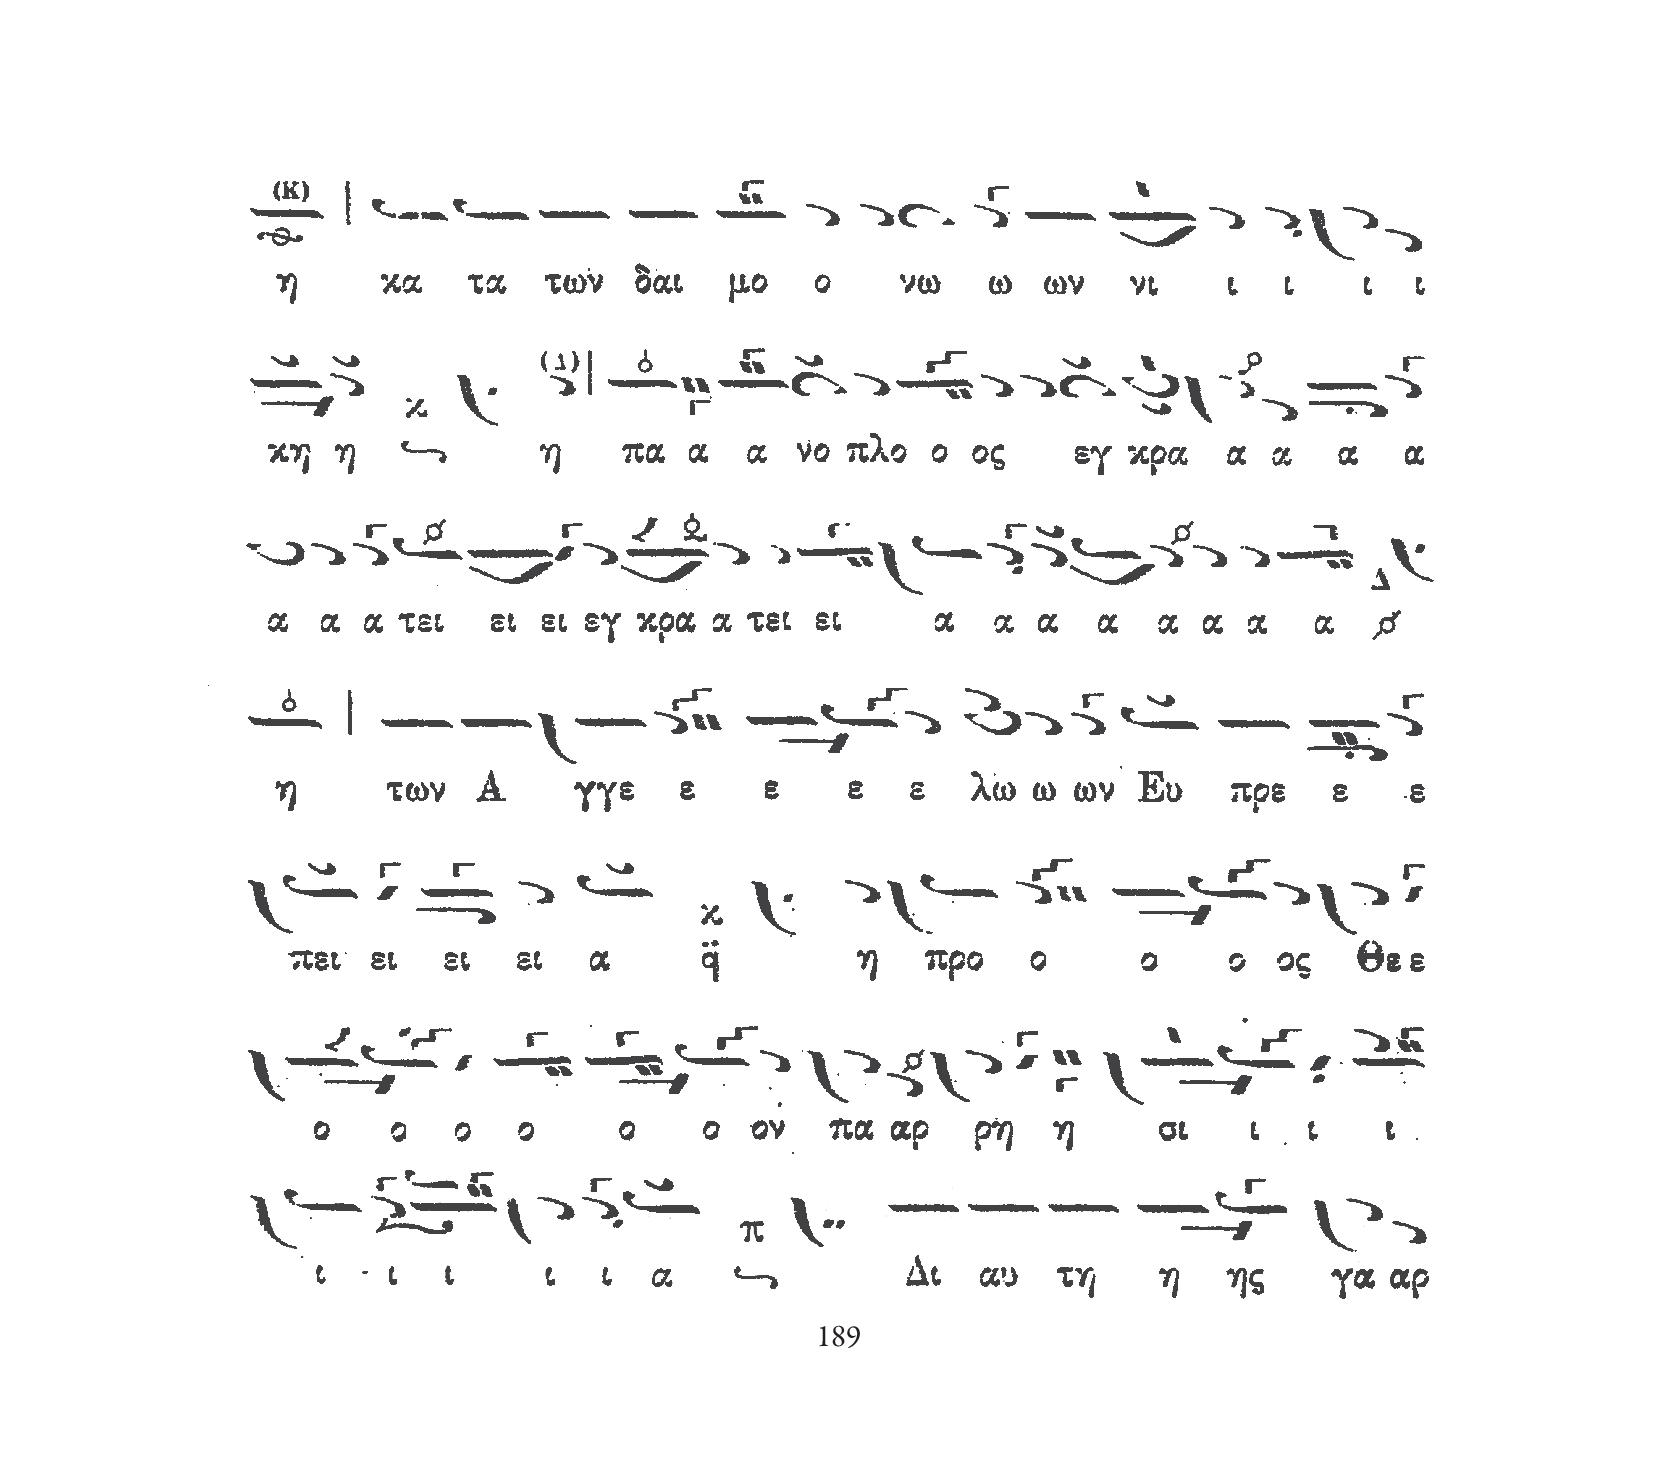 (Κ)
η κα τα των δαι μο ο νω ω ων νι ι ι ι ι
(Δ)
κη η κ η πα α α νο πλο ο ος εγ κρα α α α α
α α α τει ει ει εγ κρα α τει ει α α α α α α α α Δ
η των Α γγε ε ε ε ε λω ω ων Ευ πρε ε ε
πει ει ει ει α κ q̈ η προ ο ο ο ος Θε ε
ο ο ο ο ο ο ον πα αρ ρη η σι ι ι ι
ι ι ι ι ι α π Δι αυ τη η ης γα αρ
189